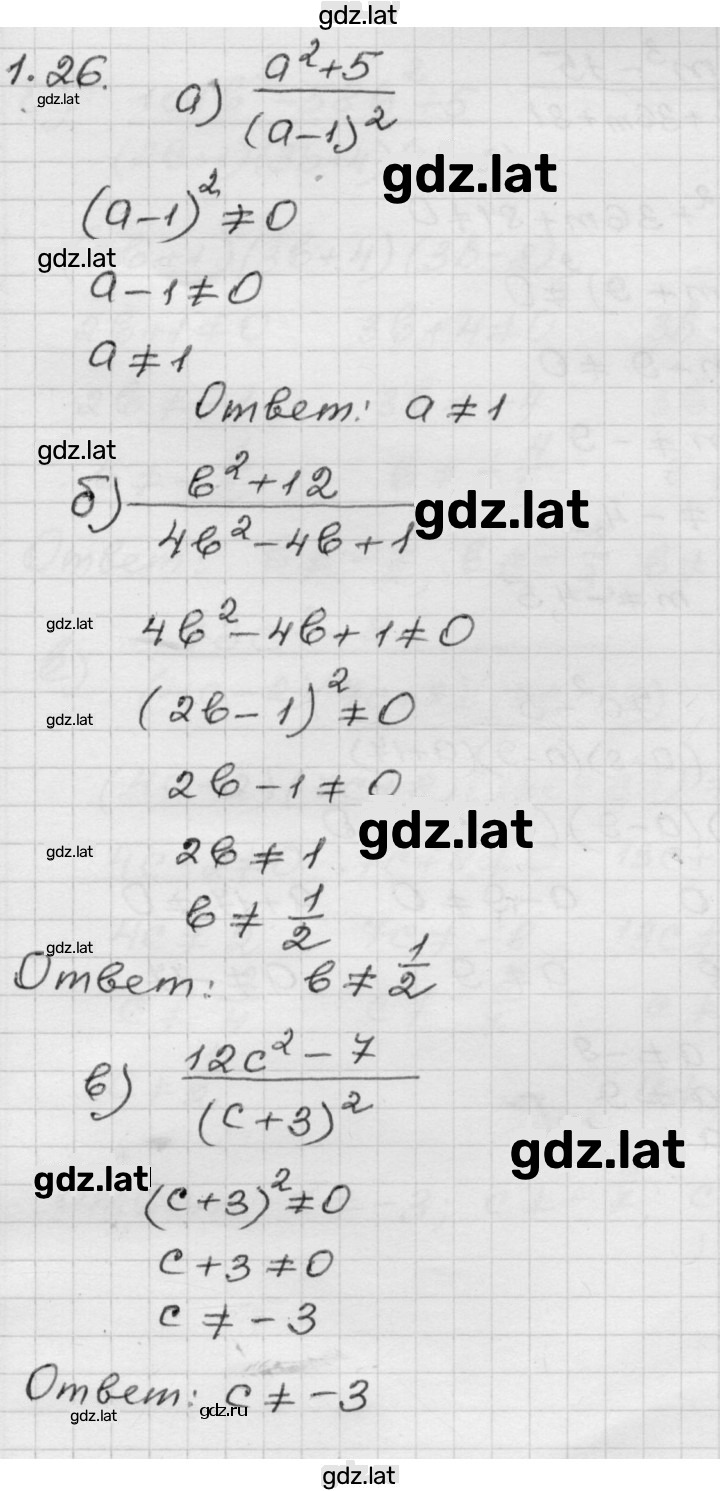 gdz.lat
1.26. а) (a²+5)/(a-1)²
gdz.lat
gdz.lat
(a-1)² ≠ 0
gdz.lat
a-1 ≠ 0
a ≠ 1
Ответ: a ≠ 1
gdz.lat
б) (b²+12)/(4b²-4b+1)
gdz.lat
gdz.lat
4b²-4b+1 ≠ 0
gdz.lat
(2b-1)² ≠ 0
2b-1 ≠ 0
gdz.lat
gdz.lat
2b ≠ 1
b ≠ 1/2
gdz.lat
Ответ: b ≠ 1/2
в) (12c²-7)/(c+3)²
gdz.lat
gdz.lat
(c+3)² ≠ 0
c+3 ≠ 0
c ≠ -3
Ответ: c ≠ -3
gdz.lat
gdz.ru
gdz.lat